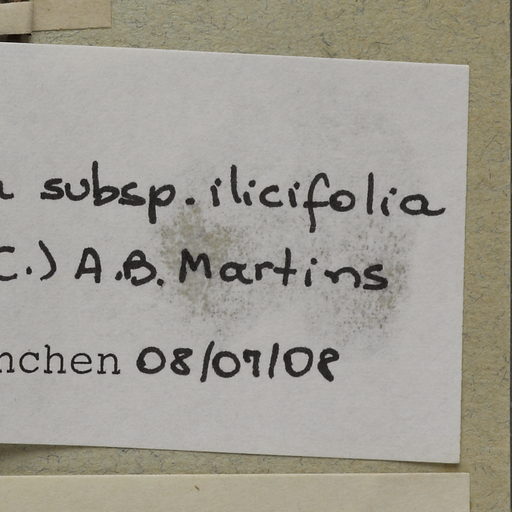 subsp. ilicifolia
C.) A.B. Martins
nchen 08/07/08